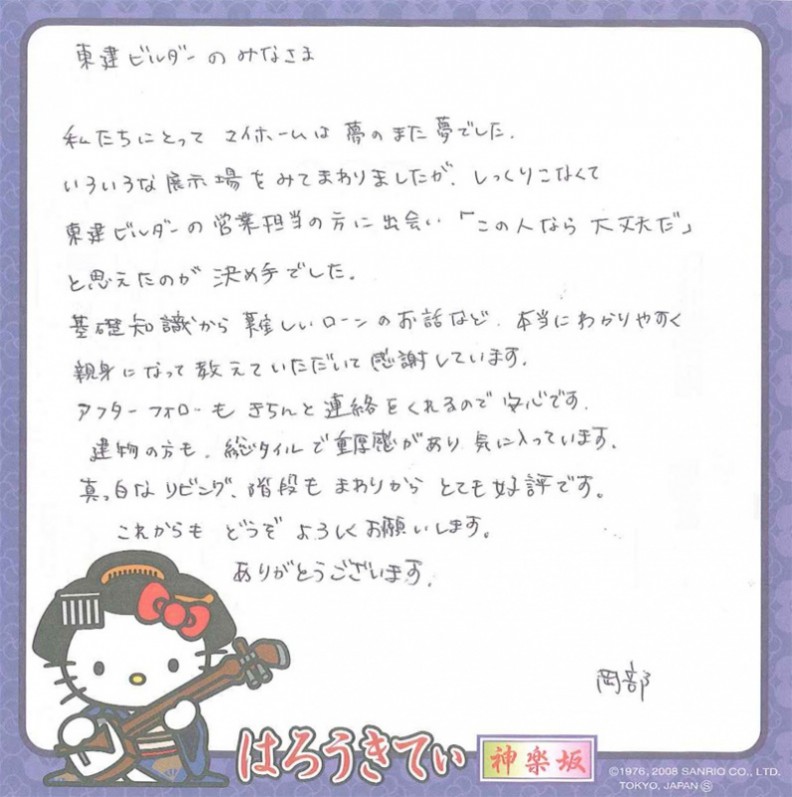 東建ビルダーのみなさま
私たちにとってマイホームは夢のまた夢でした.
いろいろな展示場をみてまわりましたが、しっくりこなくて
東建ビルダーの営業担当の方に出会い「この人なら大丈夫だ」
と思えたのが決め手でした。
基礎知識から難しいローンのお話など、本当にわかりやすく
親身になって教えていただいて感謝しています.
アフターフォローもきちんと連絡をくれるので安心です.
建物の方も、総タイルで重厚感があり気に入っています.
真っ白なリビング、階段もまわりからとても好評です。
これからもどうぞよろしくお願いします。
ありがとうございます.
岡部
はろうきてぃ
神楽坂
©1976, 2008 SANRIO CO., LTD.
TOKYO, JAPAN Ⓢ